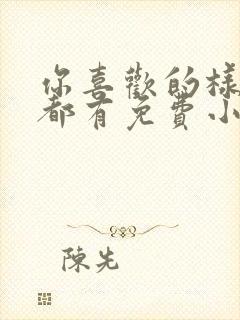 你喜歡的樣
都有免費小
陳先